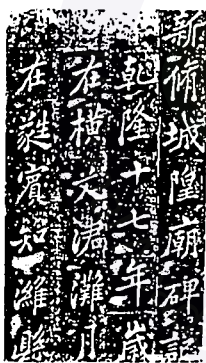 新修城隍廟碑記
乾隆十七年歲
在橫艾涒灘月
在蕤賓知濰縣